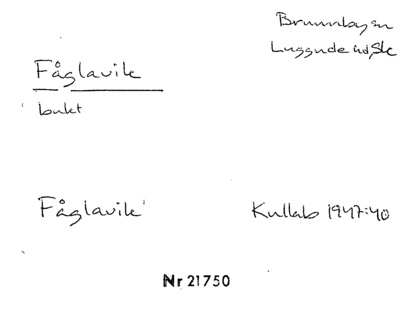 Brunnbyn sn
Luggude hd, Sk
Fåglavik
bukt
Fåglavik
Kullab 1947:40
Nr 21750